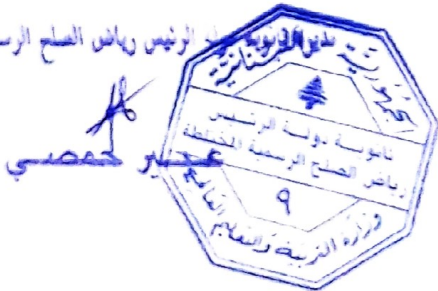 الرئيس رياض الصلح
حمصي
الجمهورية اللبنانية
ثانوية دولة الرئيس
رياض الصلح الرسمية المختلطة
٩
وزارة التربية والتعليم العالي